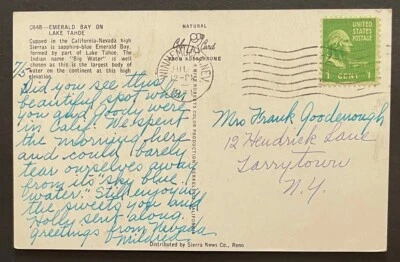 C848—EMERALD BAY ON
LAKE TAHOE
Cupped in the California-Nevada high
Sierras is sapphire-blue Emerald Bay,
formed by part of Lake Tahoe. The
Indian name "Big Water" is well
chosen as this is the largest body of
water on the continent at this high
elevation.
7/5
Did you see this
beautiful spot when
you and Goody were
in Calif? We spent
the morning here
and could barely
tear ourselves away
from its "sky blue
water." Still enjoying
the sweets you and
Holly sent along.
Greetings from Nevada
Mildred
NATURAL
Color Card
FROM KODACHROME
WINNEMUCCA, NEV
1 CENT 1
Mrs Frank Goodenough
12 Hendrick Lane
Tarrytown
N.Y.
Distributed by Sierra News Co., Reno